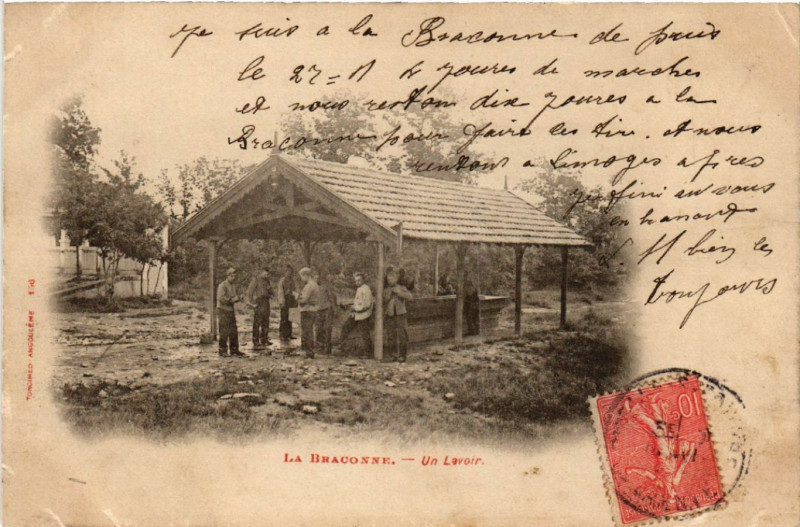 je suis a la Braconne de puis
le 27 = 11 4 joures de marches
et nous reston dix joures a la
Braconne pour faire les tire. et nous
rentont a Limoges apres
je fini au vous
en
bien les
toujours
LA BRACONNE. — Un Lavoir.
10